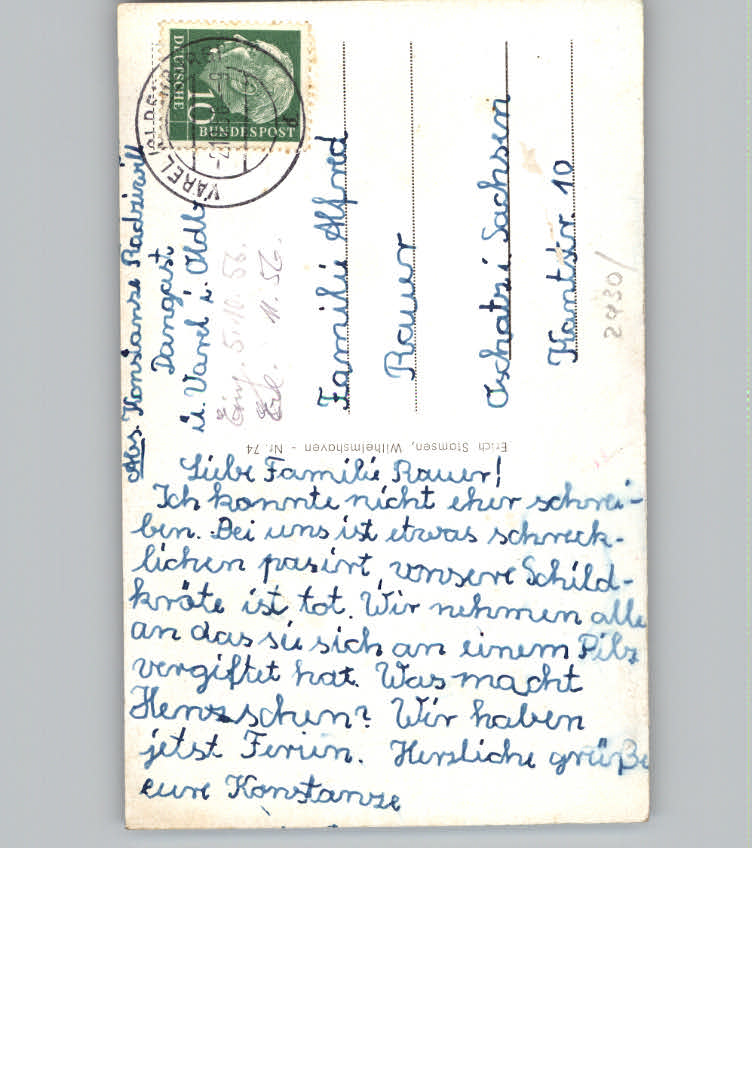 Abs. Konstanze Radziwill
Dangast
ü. Varel i. Oldb.
DEUTSCHE
10
BUNDESPOST
VAREL
Eing. 5.10.56.
11. 56.
Familie Alfred
Rauer
Oschatz i Sachsen
Kantstr. 10
2430/
Erich Stamsen, Wilhelmshaven - Nr. 74
Liebe Familie Rauer!
Ich konnte nicht eher schrei-
ben. Bei uns ist etwas schreck-
lichen pasirt, vonsere Schild-
kröte ist tot. Wir nehmen alle
an das sie sich an einem Pilz
vergiftet hat. Was macht
Henschen? Wir haben
jetst Ferien. Herzliche grüße
eure Konstanze